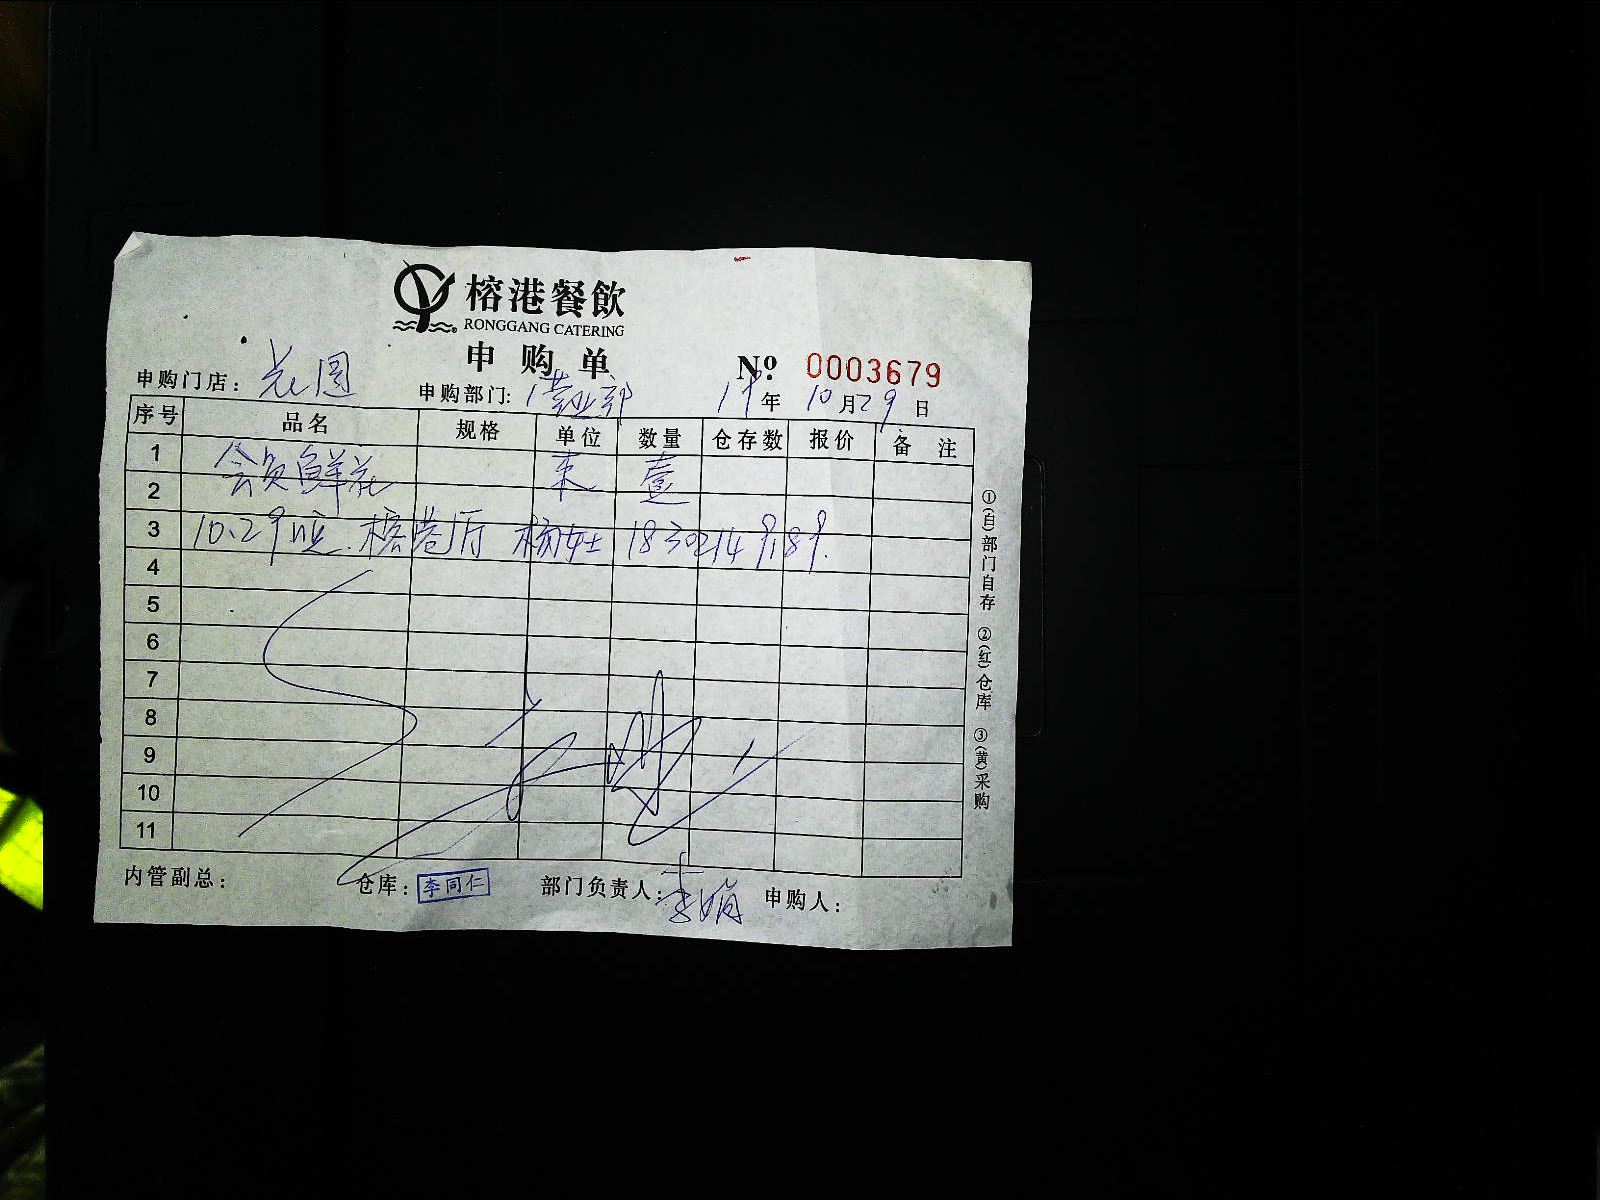 榕港餐飲
RONGGANG CATERING
申购单
№ 0003679
申购门店： 申购部门：营业部 19年10月29日
序号 品名 规格 单位 数量 仓存数 报价 备注
1 会员鲜花 束 壹
2
3 10.29晚.榕港厅 杨女士
4
5
6
7
8
9
10
11
内管副总： 仓库：李同仁 部门负责人：李娟 申购人：
①(自)部门自存 ②(红)仓库 ③(黄)采购